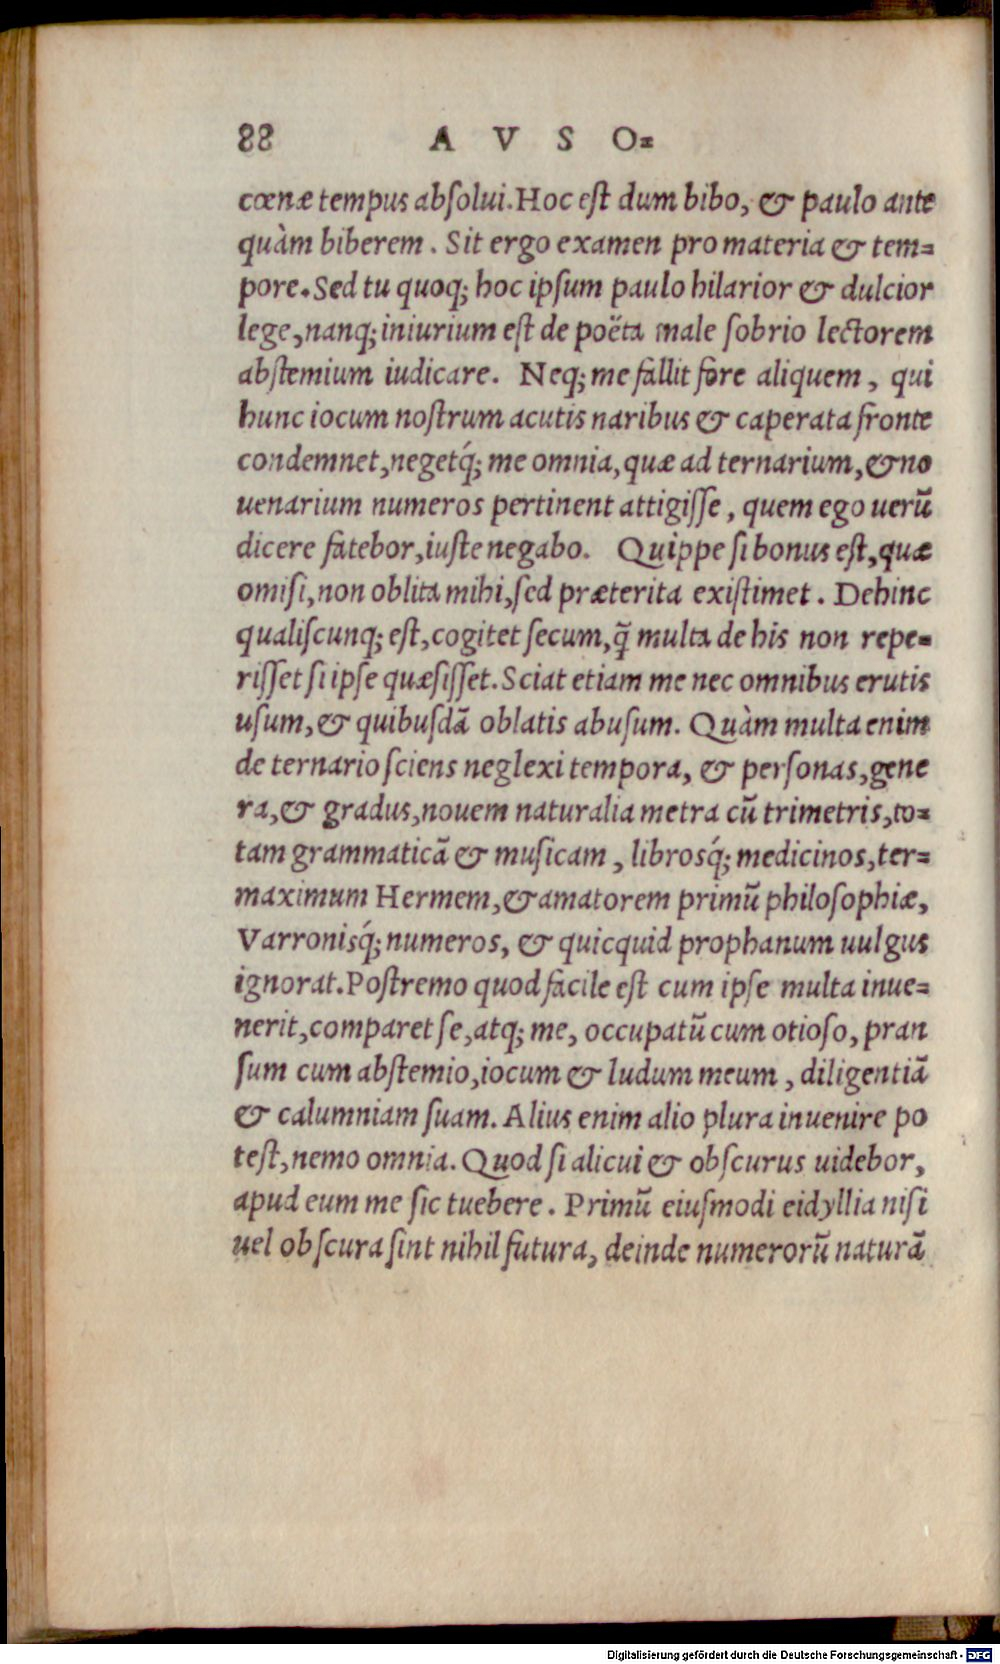 88 A V S O=
cœnæ tempus absolui. Hoc est dum bibo, & paulo ante
quàm biberem. Sit ergo examen pro materia & tem=
pore. Sed tu quoq; hoc ipsum paulo hilarior & dulcior
lege, nanq; iniurium est de poëta male sobrio lectorem
abstemium iudicare. Neq; me fallit fore aliquem, qui
hunc iocum nostrum acutis naribus & caperata fronte
condemnet, negetq́; me omnia, quæ ad ternarium, & no
uenarium numeros pertinent attigisse, quem ego uerũ
dicere fatebor, iuste negabo. Quippe si bonus est, quæ
omisi, non oblita mihi, sed præterita existimet. Dehinc
qualiscunq; est, cogitet secum, q̃ multa de his non repe=
risset si ipse quæsisset. Sciat etiam me nec omnibus erutis
usum, & quibusdã oblatis abusum. Quàm multa enim
de ternario sciens neglexi tempora, & personas, gene
ra, & gradus, nouem naturalia metra cũ trimetris, to=
tam grammaticã & musicam, librosq́; medicinos, ter=
maximum Hermem, & amatorem primũ philosophiæ,
Varronisq́; numeros, & quicquid prophanum uulgus
ignorat. Postremo quod facile est cum ipse multa inue=
nerit, comparet se, atq; me, occupatũ cum otioso, pran
sum cum abstemio, iocum & ludum meum, diligentiã
& calumniam suam. Alius enim alio plura inuenire po
test, nemo omnia. Quod si alicui & obscurus uidebor,
apud eum me sic tuebere. Primũ eiusmodi eidyllia nisi
uel obscura sint nihil futura, deinde numerorũ naturã
Digitalisierung gefördert durch die Deutsche Forschungsgemeinschaft - DFG